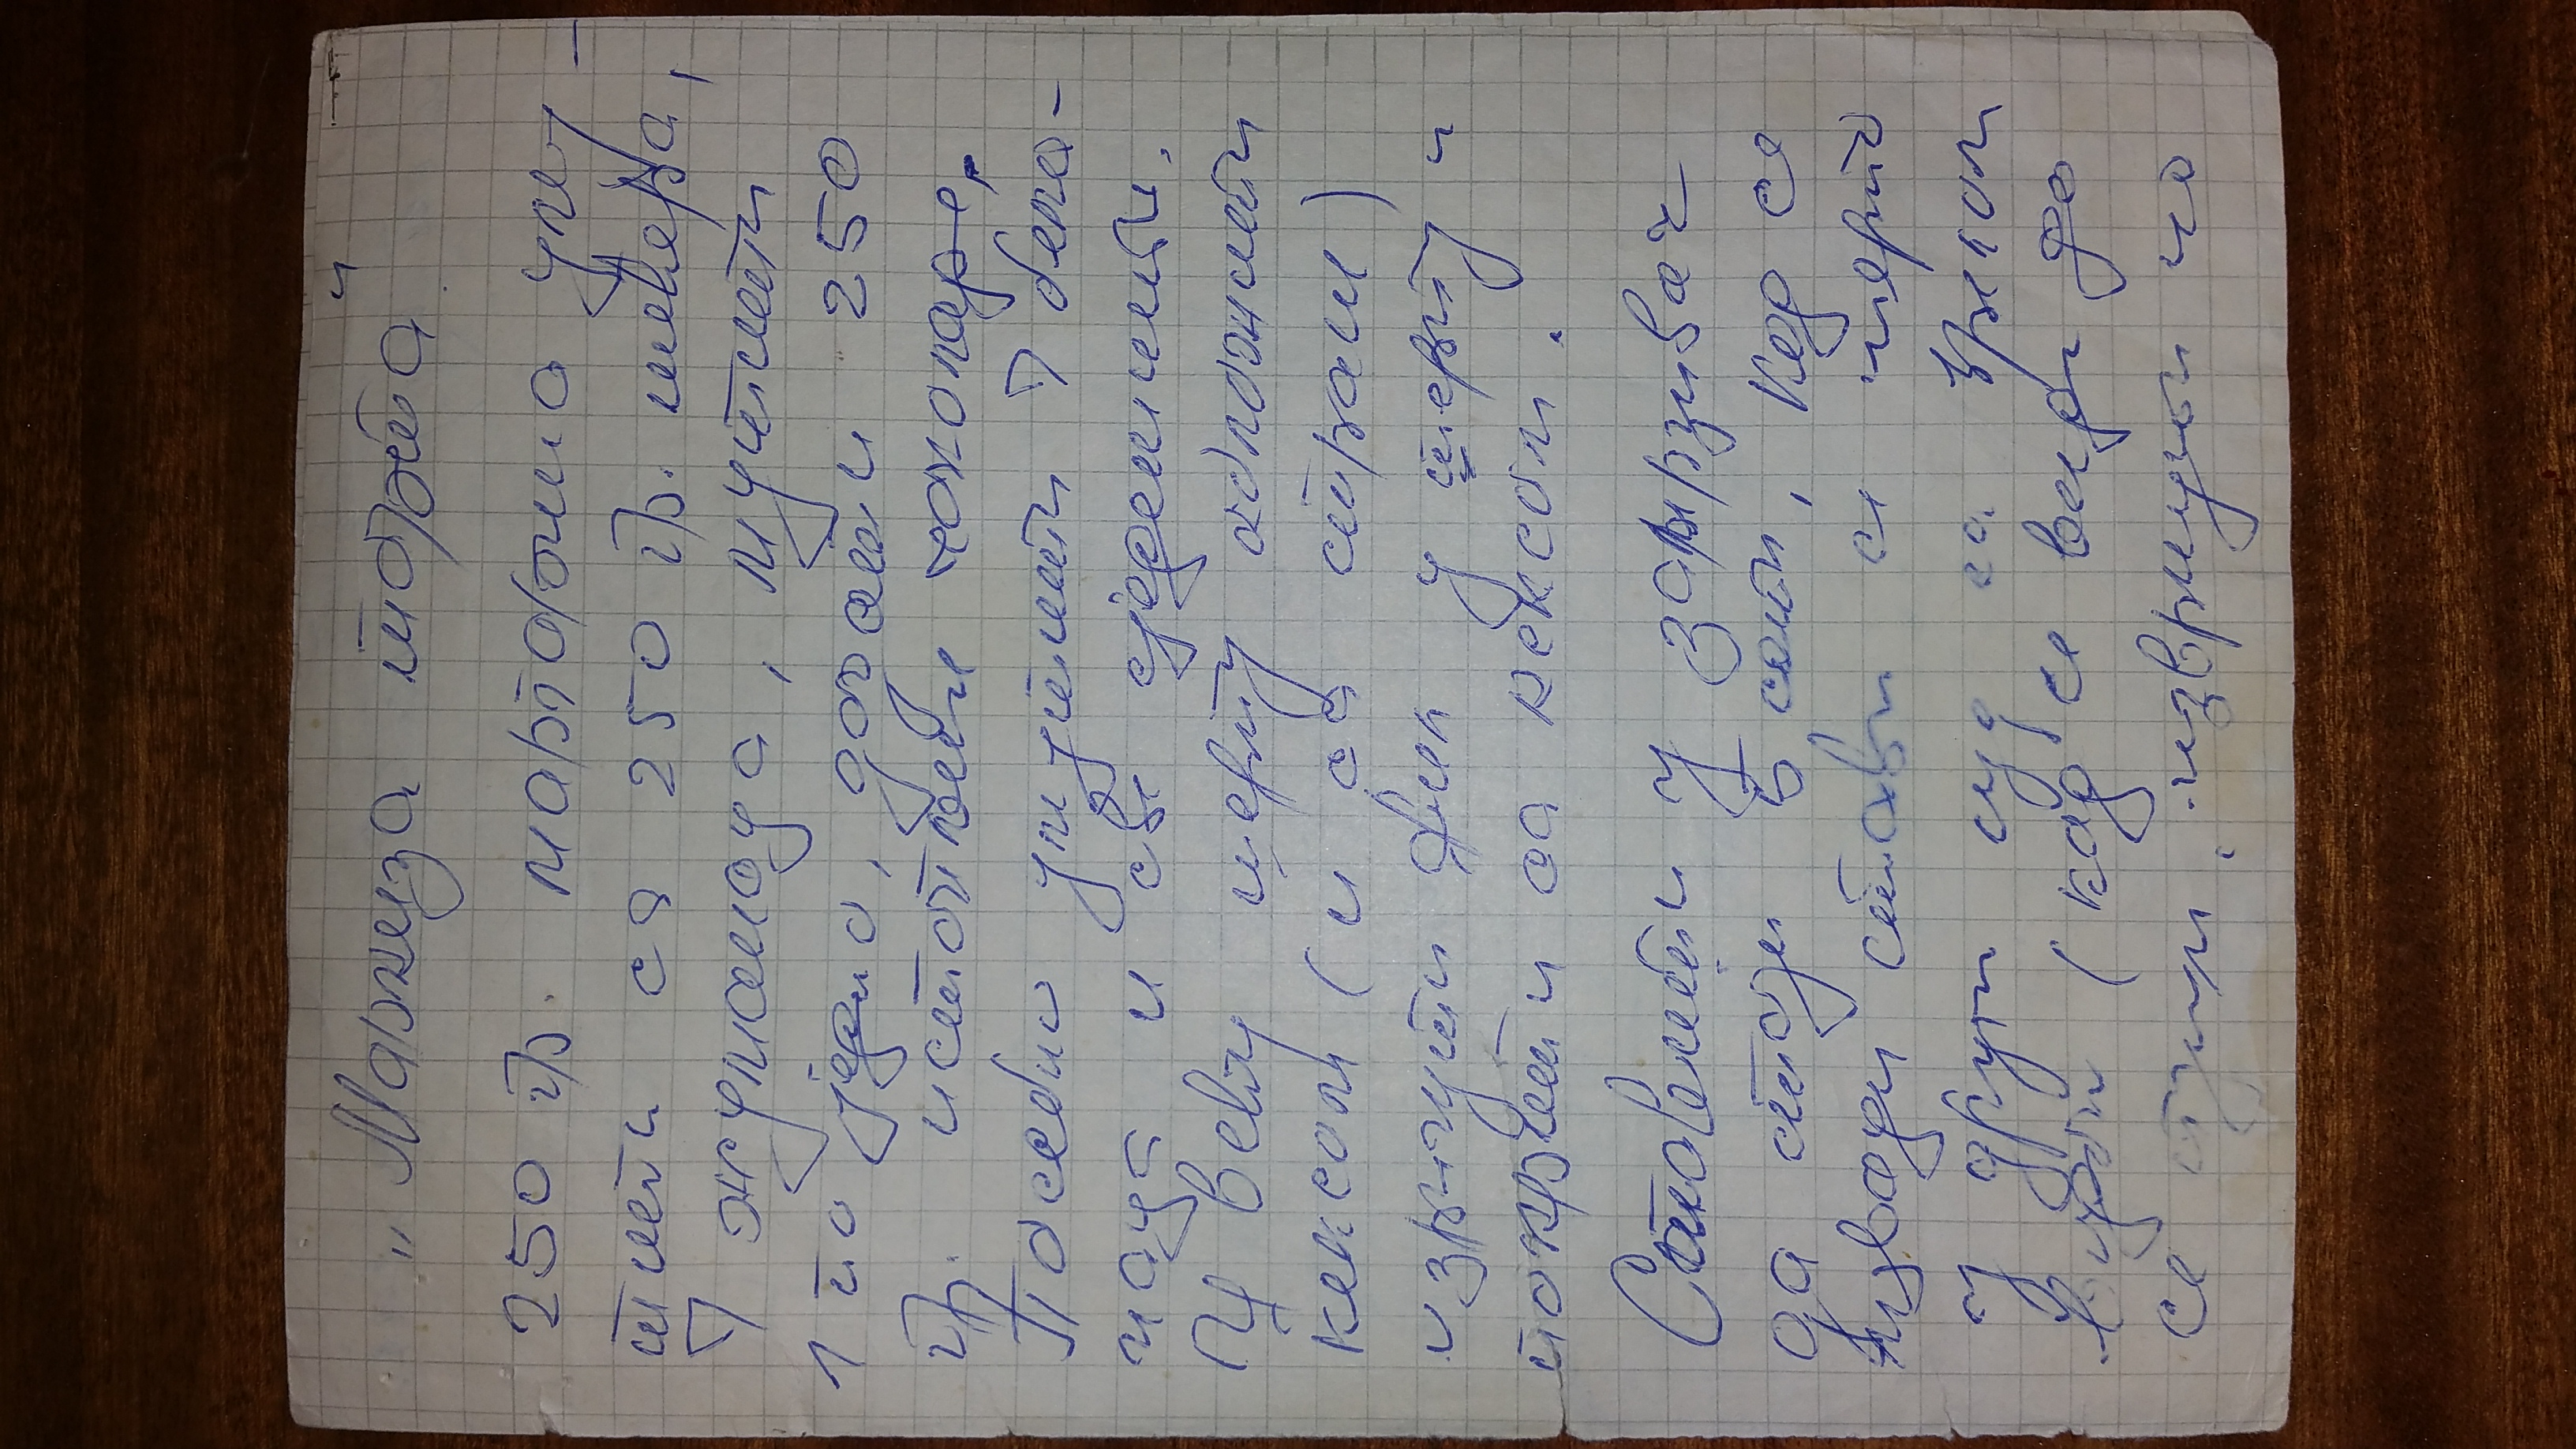 „Маркиза торта“
250 гр. маргарина уму-
тити са 250 гр. шећера,
7 жуманаца, мутити
1 по једно, додати 250
гр. истопљене чоколаде,
Посебно умутити 7 бела-
наца и све сједенити.
У већу шерпу обложити
кексом (и са стране)
изручити фил у шерпу и
покрити са кексом.
Ставити у замрзивач
да стоји 5 сати, кад се
извади стави се шерпа
у други суд са врелом
водом (кад се види да
се, изврнути на